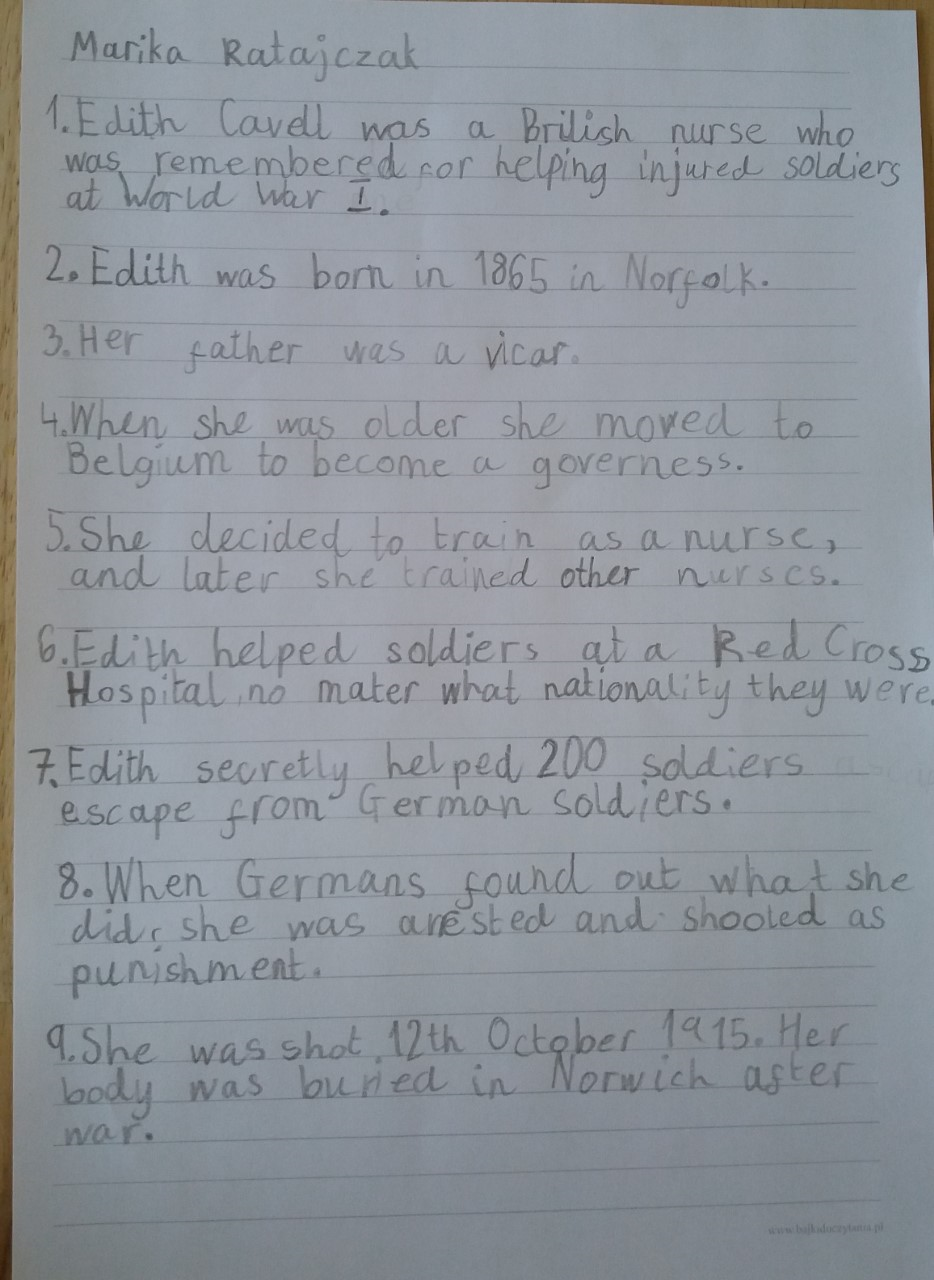 Marika Ratajczak
1. Edith Cavell was a British nurse who
was remembered for helping injured soldiers
at World War I.
2. Edith was born in 1865 in Norfolk.
3. Her father was a vicar.
4. When she was older she moved to
Belgium to become a governess.
5. She decided to train as a nurse,
and later she trained other nurses.
6. Edith helped soldiers at a Red Cross
Hospital, no mater what nationality they were.
7. Edith secretly helped 200 soldiers
escape from German soldiers.
8. When Germans found out what she
did, she was arested and shooted as
punishment.
9. She was shot 12th October 1915. Her
body was buried in Norwich after
war.
www.bajkidoczytania.pl